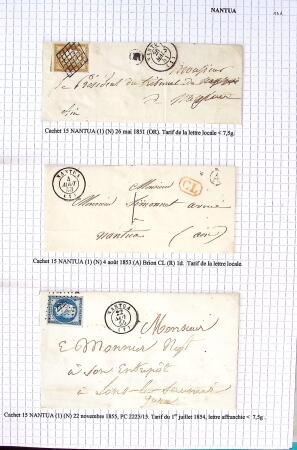 NANTUA
NANTUA
(1)
Monsieur
le Président du Tribunal de
à Nantua
Ain
Cachet 15 NANTUA (1) (N) 26 mai 1851 (OR). Tarif de la lettre locale < 7,5g.
NANTUA
4
AOUT
53
(1)
CL
A
Monsieur
Monsieur Simonnet avoué
à
nantua (ain)
Cachet 15 NANTUA (1) (N) 4 août 1853 (A) Brion CL (R) 1d. Tarif de la lettre locale.
NANTUA
22
(1)
Monsieur
E Monnier Negt
à son Entrepôt
à Lons-le-Saunier
Jura
Cachet 15 NANTUA (1) (N) 22 novembre 1855, PC 2223/15. Tarif du 1er juillet 1854, lettre affranchie < 7,5g .